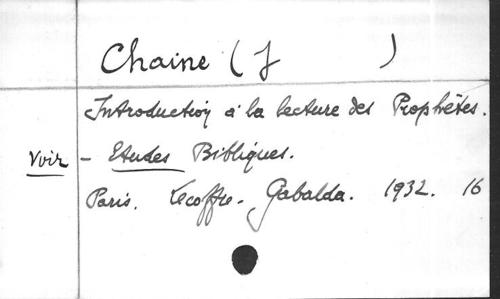 Chaine (J )
Introduction à la lecture des Prophètes.
Voir - Etudes Bibliques.
Paris. Lecoffre - Gabalda. 1932. 16